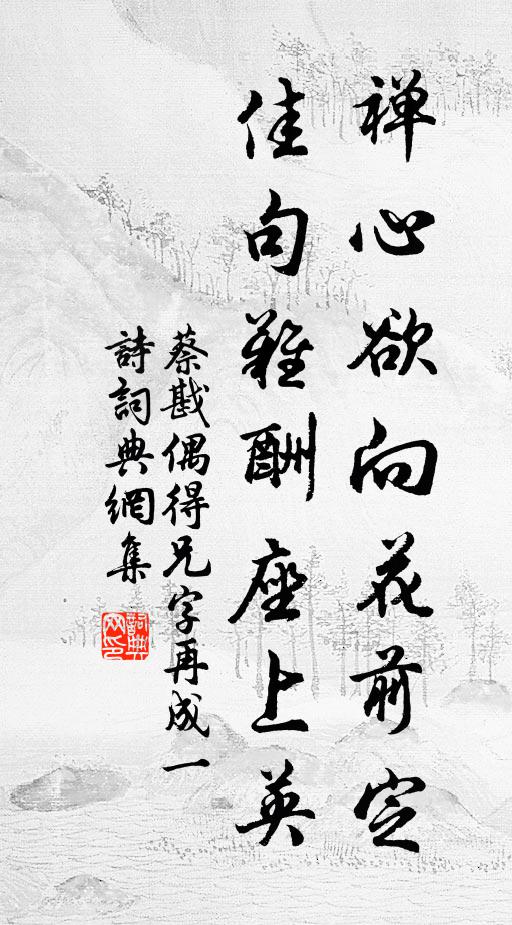 禅心欲向花前定
佳句难酬座上英
蔡戡偶得兄字再成一
詩詞典網集
詞典
网印